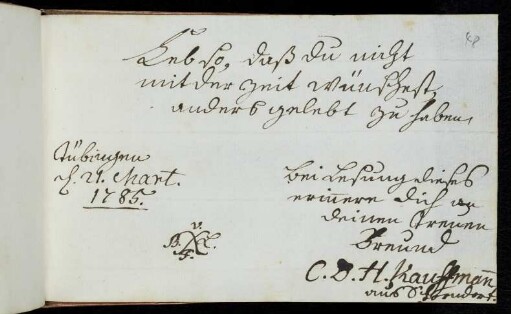 Leb so, daß du nicht
mit der Zeit wünschest,
anders gelebt zu haben.
Tübingen
d. 21 Mart.
1785.
Bei Lesung dieses
erinnere dich an
deinen treuen
Freund
C. D. H. Kauffmann
aus Schorndorf.
V.